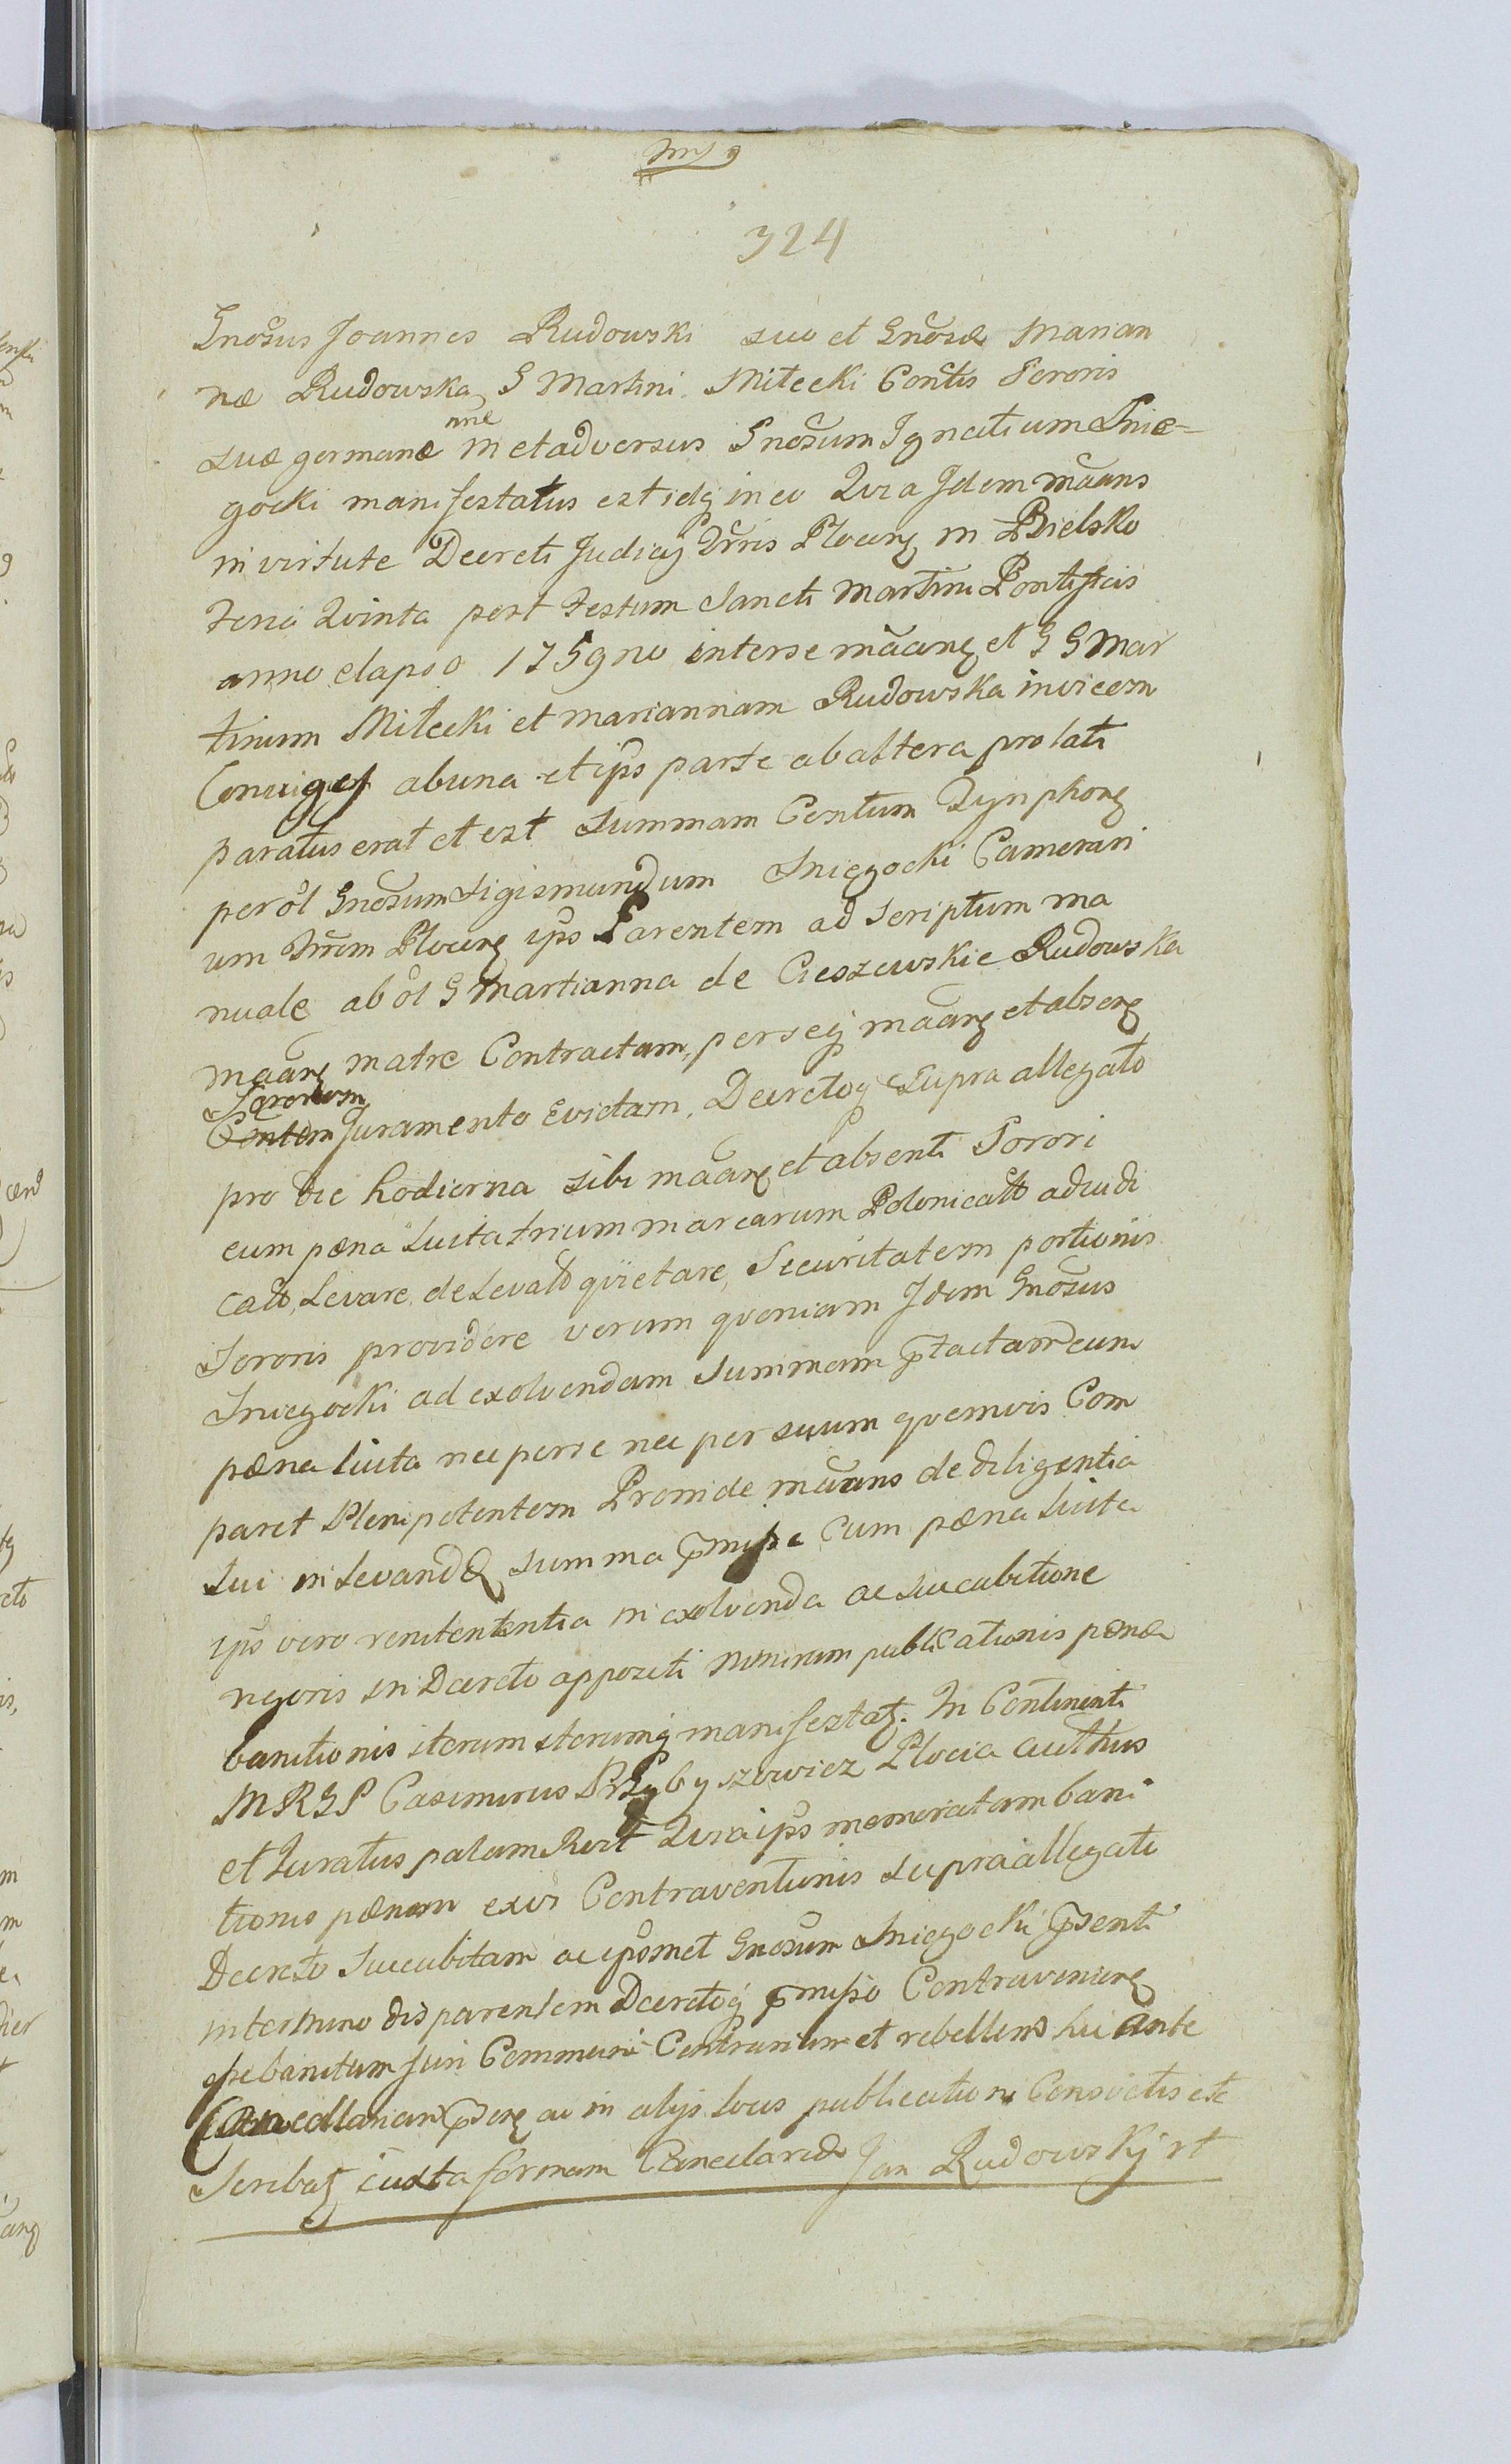 324
Gnosus Joannes Rudowski suo et Gnosæ Marian
næ Rudowska G Martini Miłecki Contis Sororis
suæ germanæ nne in et adversus Gnosum Ignatium Snie-
gocki manifestatus est idq in eo Qvia Idem mãans
in virtute Decreti Judicij Trris Plocens in Bielsko
Feria Qvinta post Festum Sancti Martini Pontificis
anno elapso 1759no inter se mãans et G G Mar
tinum Miłecki et Mariannam Rudowska invicem
Conuiges ab una et ips parte ab altera prolati
paratus erat et est Summam Centum Tynphons
per ol Gnosum Sigismundum Sniegocki Camerari
um Trrem Plocens ips Parentem ad Scriptum ma
nuale ab ol G Martianna de Cieszewskie Rudowska
mãans matre Contractam, per seq mãans et absens
Sororem
Contem Juramento Evictam, Decretoq Supra allegato
pro die hodierna sibi mãans et absenti Sorori
cum pæna Luita trium marcarum Polonicalt adiudi
catt, Levare, de Levatt qvietare, Securitatem portionis
Sororis providere verum qvoniam Idem Gnosus
Sniegocki ad exolvendam Summam ptactam cum
pæna luita nec per se nec per suum qvemvis Com
paret Plenipotentem Proinde mãans de diligentia
sui in Levanda Summa pmissa Cum pæna Luita
ips vero renitententia in exolvenda ac Succubitione
rigoris in Decreto appositi nimirum publicationis pænæ
banitionis iterum iterumq manifestat. In Continenti
MRGP Casimirus Przybyszewicz Plocia authus
et Juratus palam Recit Qvia ips memoratam bani
tionis pænam ex vi Contraventionis supra allegato
Decreto Succubitam ac ipsmet Gnosum Sniegocki psenti
in termino disparentem Decretoq pmisso Contraveniens
esse banitum Juri Communi Contrarium et rebellem hic ante
Cancellariam psens ac in alijs locis publicationi Consvetis etc
Scribat iuxta formam Cancelariæ Jan Rudowskj rt